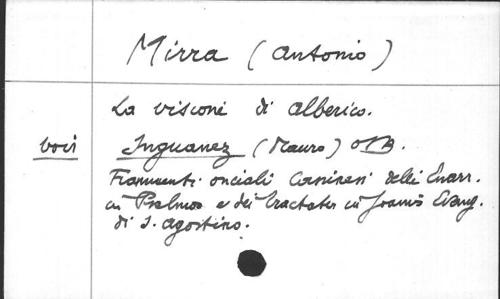 Mirra (Antonio)
La visione di Alberico.
vovi Inguanez (Mauro) OSB.
Frammenti onciali Cassinesi delle Enarr.
in Psalmos e dei Tractatus in Joannis Evang.
di S. Agostino.